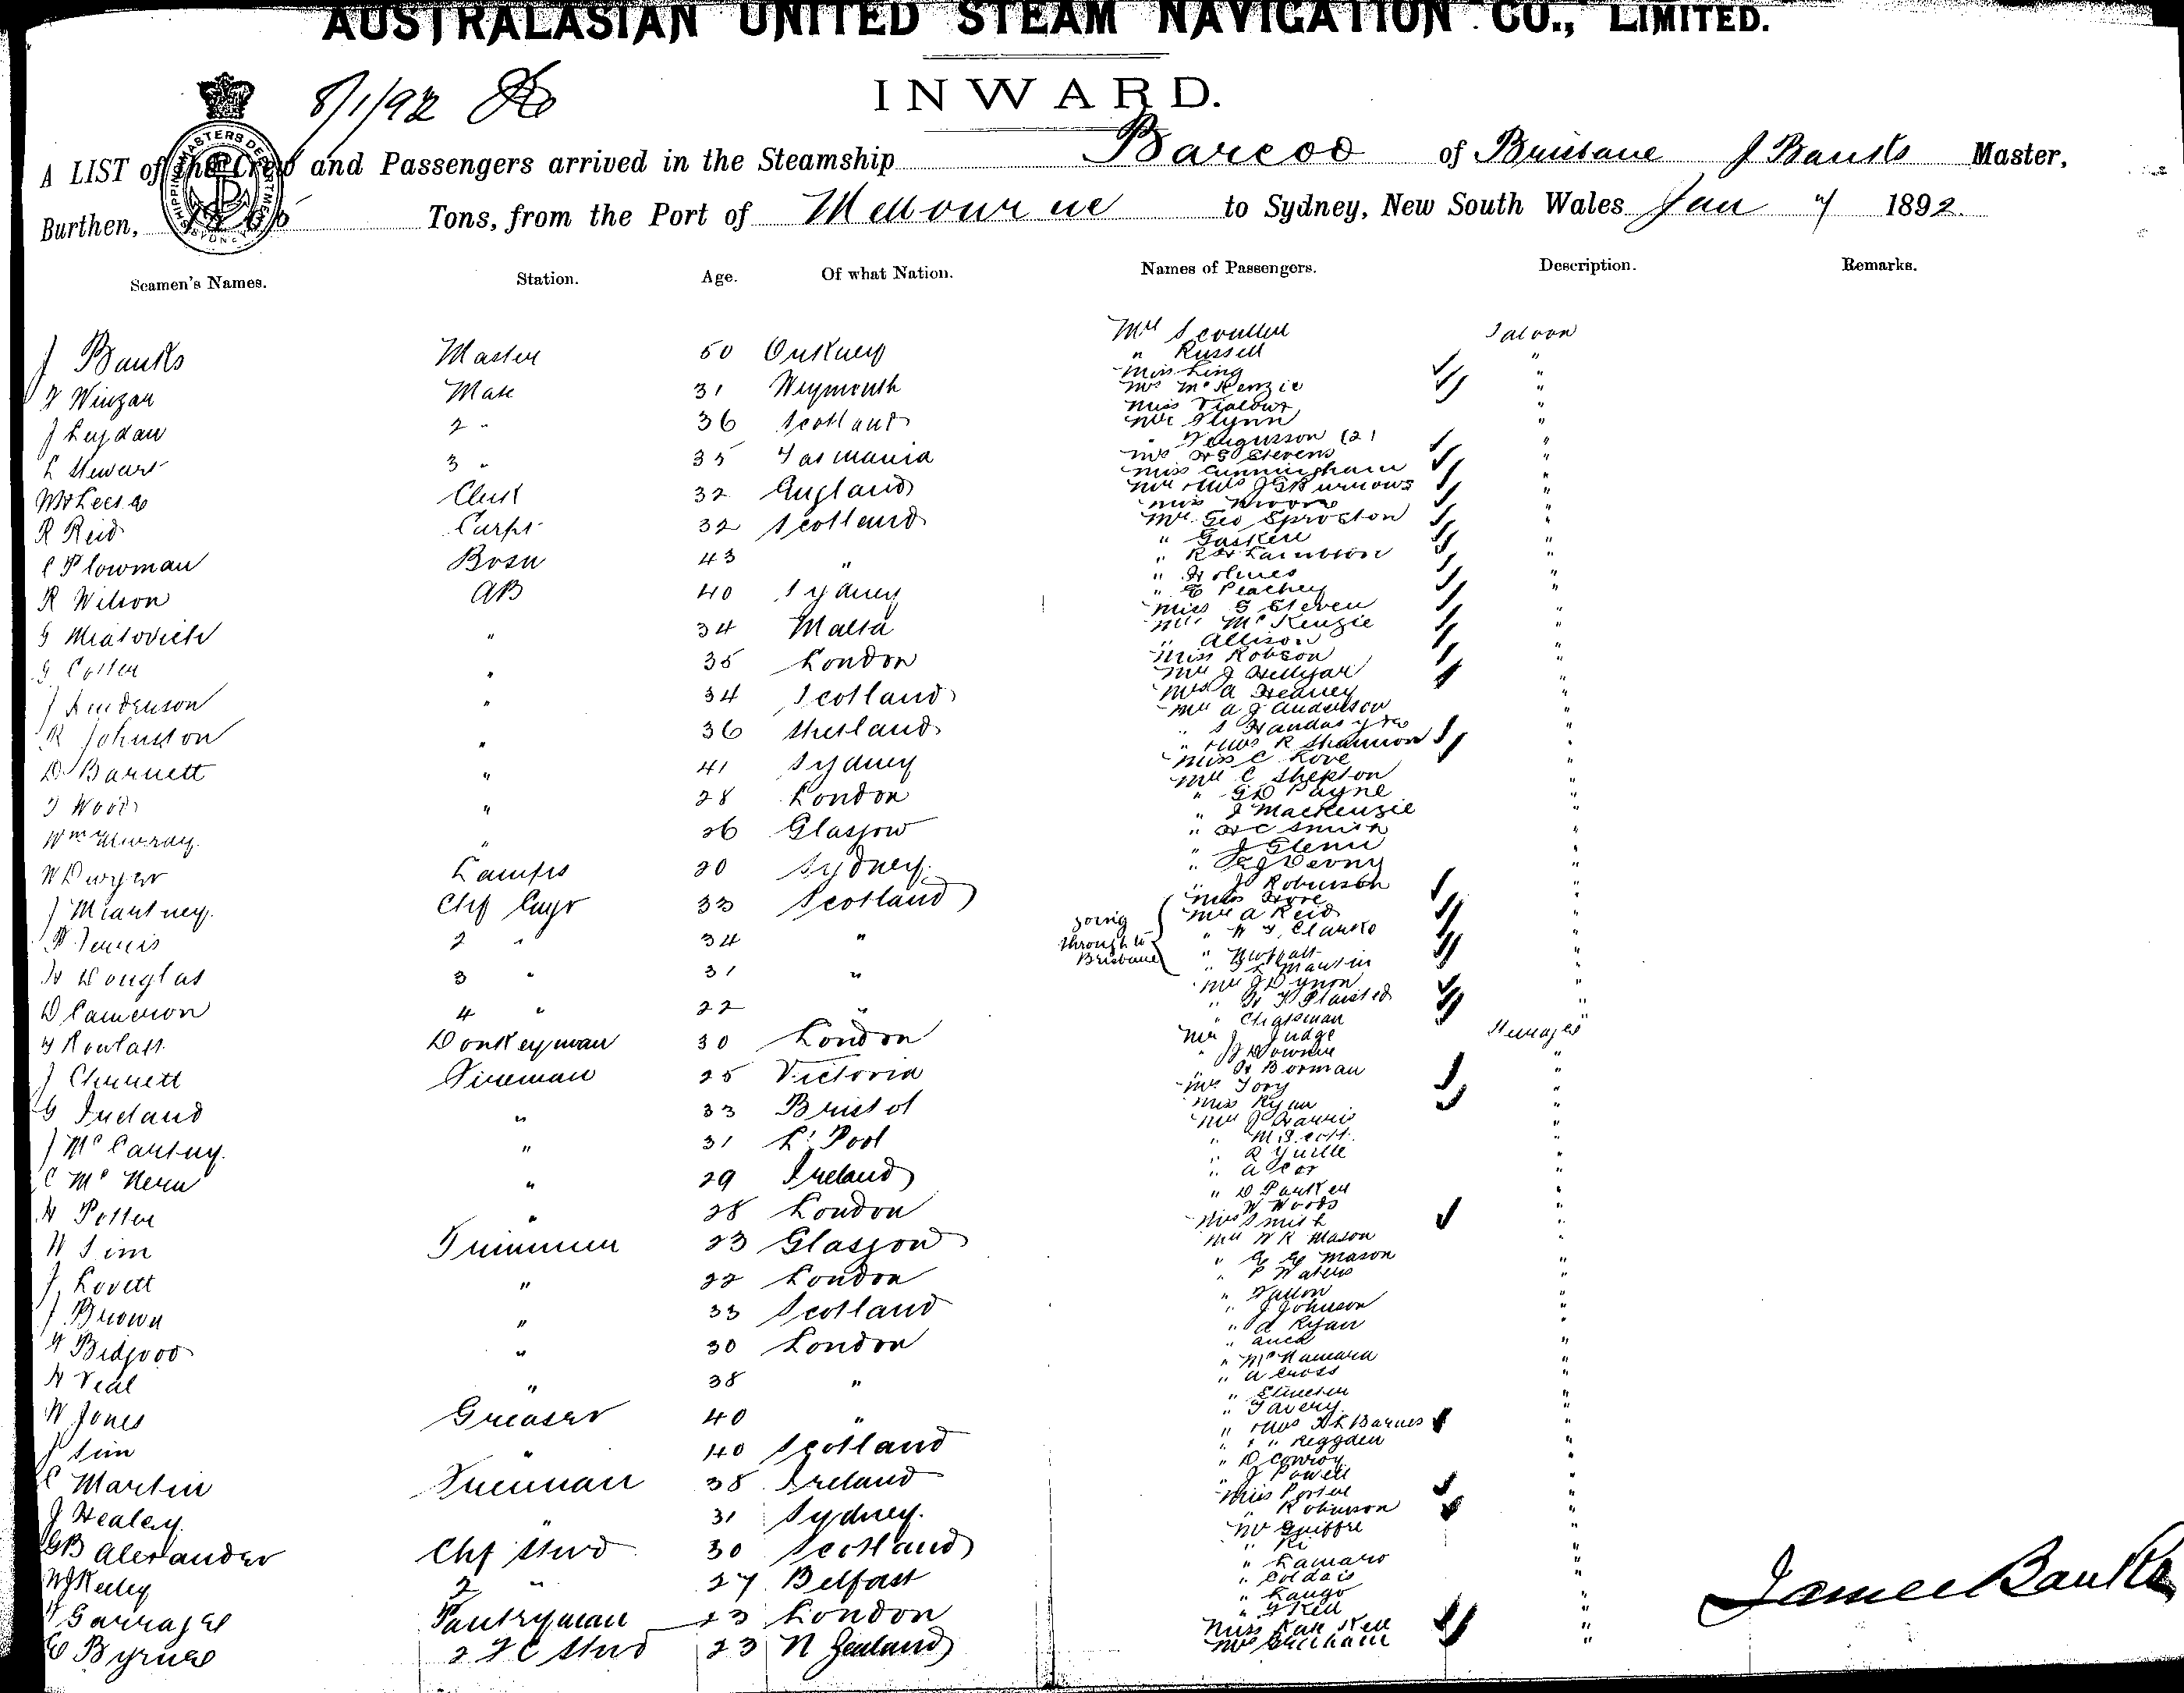 AUSTRALASIAN UNITED STEAM NAVIGATION CO., LIMITED.
INWARD.
8/1/92
SHIPPING MASTERS DEPARTMENT SYDNEY
A LIST of the Crew and Passengers arrived in the Steamship Barcoo of Brisbane J Banks Master,
Burthen, Tons, from the Port of Melbourne to Sydney, New South Wales Jan 7 1892.
Seamen's Names. Station. Age. Of what Nation. Names of Passengers. Description. Remarks.
J Banks Master 50 Orkney
F Winzar Mate 31 Weymouth
J Leydan 2 " 36 Scotland
L Stewart 3 " 35 Tasmania
Clerk 32 England
R Reid Carpt 32 Scotland
C Plowman Bosn 43 "
R Wilson AB 40 Sydney
G Miatovich " 34 Malta
G Cotter " 35 London
J Anderson " 34 Scotland
R Johnston " 36 Shetland
D Barnett " 41 Sydney
J Wood " 28 London
Wm Murray " 26 Glasgow
W Dwyer Lamps 20 Sydney
J McCartney Chf Engr 33 Scotland
2 " 34 "
H Douglas 3 " 31 "
D Cameron 4 " 22 "
Donkeyman 30 London
J Fireman 25 Victoria
G Ireland " 33 Bristol
J McCartney " 31 L'Pool
C McKern " 29 Ireland
H Potter " 28 London
W Sim Trimmer 23 Glasgow
J Lovett " 22 London
J Brown " 33 Scotland
Bidgood " 30 London
H Veal " 38 "
W Jones Greaser 40 "
J Sim " 40 Scotland
C Martin Fireman 38 Ireland
J Healey " 31 Sydney
GB Alexander Chf Stwd 30 Scotland
WJ Kelly 2 " 27 Belfast
Garrazel Pantryman 23 London
E Byrne 2 F C Stwd 23 N Zealand
Mr Scouller Saloon
" Russell "
Miss Ling "
Mrs McKenzie "
Miss
Mr Flynn "
" Fergusson (2)
Mrs HG Stevens "
Miss Cunningham "
Mr & Mrs Burrows "
Miss Moore "
Mr Geo Sproston "
" Gaskell "
" Lambton "
" Holmes
" E Peachey "
Miss G Steven "
Mr McKenzie "
" Allison "
Miss Robson "
Mr J Hellyar "
Mrs A Heaney "
Mr A J Anderson "
" S Handasyde "
" & Mrs R Shannon "
Miss C Love "
Mr C Shepton "
" GD Payne "
" J Mackenzie "
" HC Smith "
" J Glenn "
" "
" J Robinson "
going through to Brisbane
Miss Hore "
Mr A Reid "
" Clarke "
"
" Martin "
Mr J Dynon "
" Plaisted "
" Chapman "
Mr J Judge Steerage
" J Downie "
" H Borman "
Mrs Tory "
Miss Ryan "
Mr J Harris "
" M Scott "
" R Yuille "
" A Cox "
" D Parker "
W Woods "
Mrs Smith "
Mr W R Mason "
" Mason "
" P Waters "
" Fallon "
" J Johnson "
" A Ryan "
"
" McNamara "
" A Cross "
"
" Tavery "
" & Mrs Barnes "
" " " Reggden "
" D Conroy "
" J Powell "
Miss Porter "
" Robinson "
Mr
" Ri "
" Lamaro "
" Coldais "
" Lango "
" J Kell "
Miss Kate Kell "
Mrs "
James Banks